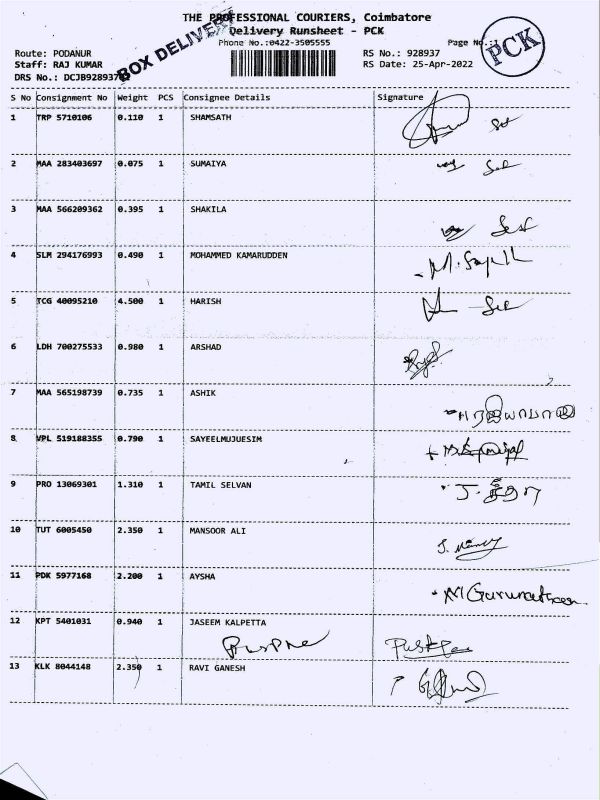 THE PROFESSIONAL COURIERS, Coimbatore
Delivery Runsheet - PCK
Phone No.:0422-3505555
Page No.:1
BOX DELIVERY
PCK
Route: PODANUR
RS No.: 928937
Staff: RAJ KUMAR
RS Date: 25-Apr-2022
DRS No.: DCJB928937
S No Consignment No Weight PCS Consignee Details Signature
1 TRP 5710106 0.110 1 SHAMSATH
2 MAA 283403697 0.075 1 SUMAIYA
3 MAA 566209362 0.395 1 SHAKILA
4 SLM 294176993 0.490 1 MOHAMMED KAMARUDDEN
5 TCG 40095210 4.500 1 HARISH
6 LDH 700275533 0.980 1 ARSHAD
7 MAA 565198739 0.735 1 ASHIK
8 VPL 519188355 0.790 1 SAYEELMUJUESIM
9 PRO 13069301 1.310 1 TAMIL SELVAN
10 TUT 6005450 2.350 1 MANSOOR ALI
11 PDK 5977168 2.200 1 AYSHA
12 KPT 5401031 0.940 1 JASEEM KALPETTA
13 KLK 8044148 2.350 1 RAVI GANESH